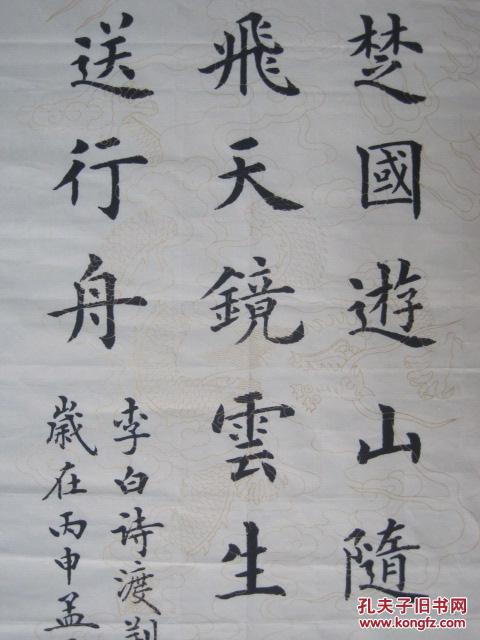 楚國遊山隨
飛天鏡雲生
送行舟
李白诗渡荆
歲在丙申孟
孔夫子旧书网
kongfz.com